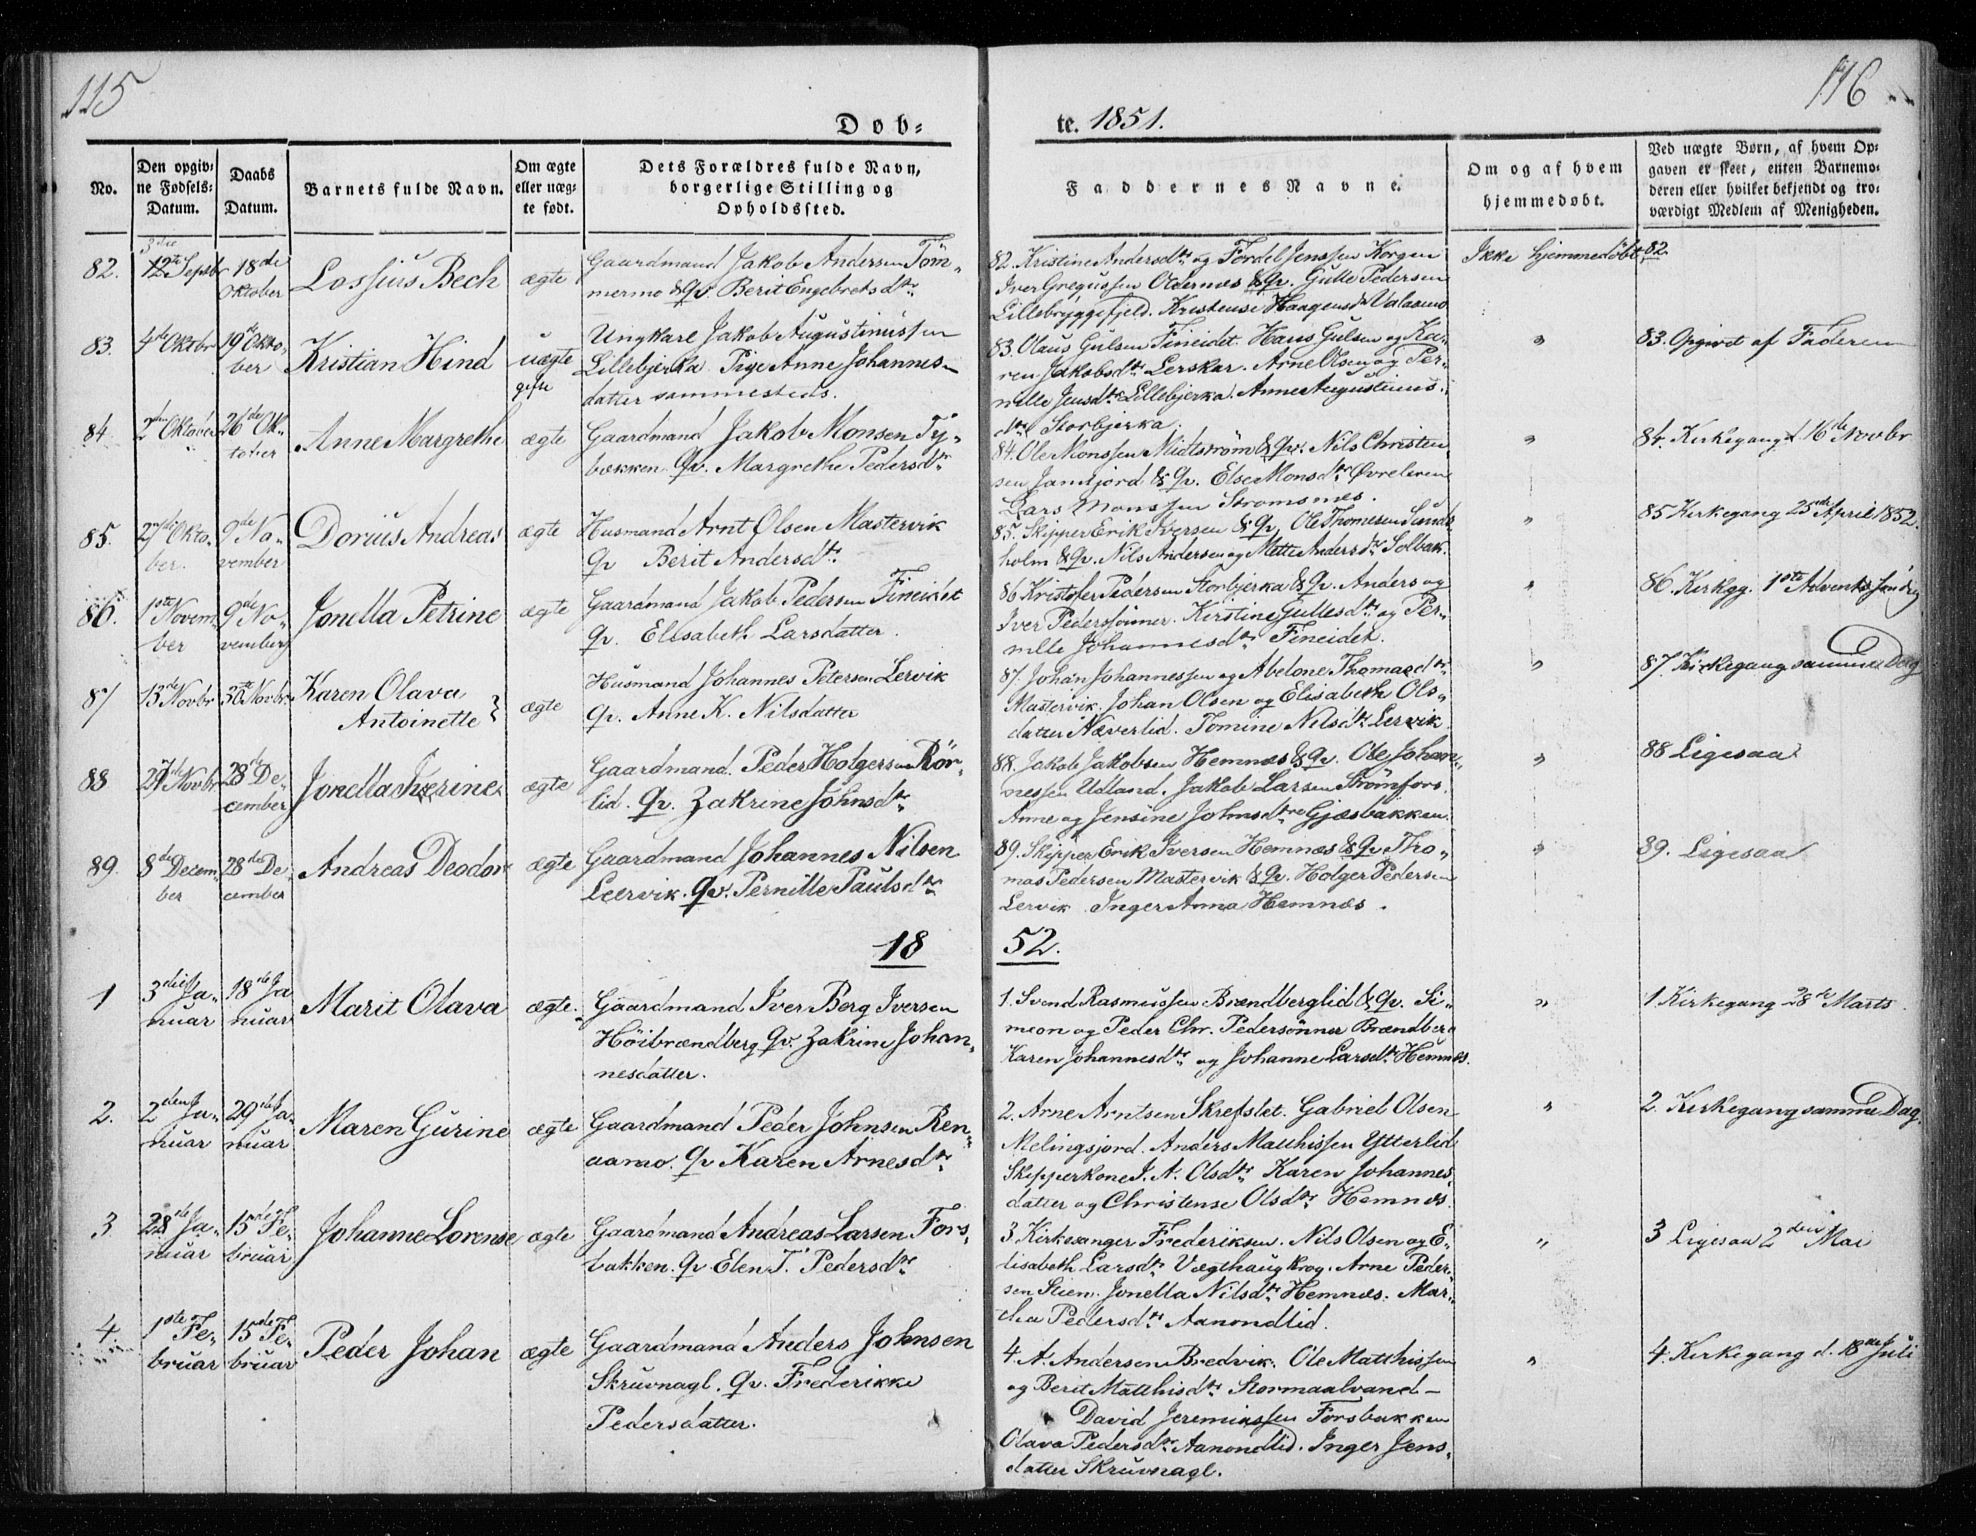 115
116
Døb-
te. 1851.
No.
Den opgiv-
ne Fødsels-
Datum.
Daabs
Datum.
Barnets fulde Navn.
Om ægte
eller uæg-
te født.
Dets Forældres fulde Navn,
borgerlige Stilling og
Opholdssted.
Faddernes Navne.
Om og af hvem
hjemmedøbt.
Ved uægte Børn, af hvem Op-
gaven er skeet, enten Barnemo-
deren eller hvilket bekjendt og tro-
værdigt Medlem af Menigheden.
82.
12te Septbr
18de
Oktober
Lossius Bech
ægte
Gaardmand Jakob Andersen Töm-
mermo & Qv. Berit Engebretsdtr
82. Kristine Andersdtr og Fordel Jenssen Korgen
Iver Gregussen Oldernæs & Qv. Gulle Pedersen
Lillebryggefjeld. Kristense Haagensdtr Valaamo
Ikke hjemmedöbt
82.
83.
4de Oktbr
19de Okto-
ber
Kristian Hind
uægte
Ungkarl Jakob Augustinussen
Lillebjerka Pige Anne Johannes-
datter sammesteds.
83. Olaus Gulsen Fineidet. Hans Gulsen og Ka-
ren Jakobsdtr Lerskar. Arne Olsen og Per-
nille Jensdtr Lillebjerka. Anne Augustinus-
dtr Storbjerka.
"
83. Opgivet af Faderen
84.
2den Oktober
26de Ok-
tober
Anne Margrethe
ægte
Gaardmand Jakob Monsen Ty-
bækken Qv. Margrethe Pedersdtr
84. Ole Monssen Midtström & Qv. Nils Christen-
sen Jamtjord & Qv. Else Monsdtr Øvreleren
Lars Monssen Strömsnes.
"
84. Kirkegang d 16de Novbr
85.
27de Okto-
ber.
9de No-
vember
Dorius Andreas
ægte
Husmand Arnt Olsen Mastervik
Qv Berit Andersdtr
85. Skipper Erik Iversen & Qv, Ole Thomesen Sund-
holm & Qv. Nils Andersen og Mette Andersdtr Solbak.
"
85 Kirkegang 25de April 1852.
86.
1ste Novem-
ber
9de No-
vember
Jonella Petrine
ægte
Gaardmand Jakob Pedersen Fineidet
Qv. Elisabeth Larsdatter.
86 Kristofer Pedersen Storbjerka & Qv. Anders og
Iver Pederssönner. Kirstine Gullesdtr og Per-
nille Johannesdtr Fineidet.
"
86. Kirkgg. 1ste Advents söndag
87
13de Novbr
30te Novbr.
Karen Olava
Antoinette
ægte
Husmand Johannes Petersen Lervik
Qv. Anne K. Nilsdatter
87. Johan Johannessen og Abelone Thomasdtr
Mastervik. Johan Olsen og Elisabeth Ols-
datter Næverlid. Tomine Nilsdtr Lervik
"
87. Kirkegang samme Dag
88
Novbr
28de De-
cember
Jonella Kerine
ægte
Gaardmand. Peder Holgersen Rör-
lid. Qv. Zakrine Johnsdtr
88. Jakob Jakobsen Hemnæs & Qv. Ole Johan-
nessen Udland. Jakob Larsen Strömfors.
Anne og Jensine Johnsdtre Gjæsbakken.
"
88 Ligesaa
89.
8de Decem-
ber
28de De-
cember
Andreas Deodor
ægte
Gaardmand Johannes Nilsen
Leervik. Qv. Pernille Paulsdtr
89. Skipper Erik Iversen Hemnæs & Qv Tho-
mas Pedersen Mastervik & Qv. Holger Pedersen
Lervik. Inger Anna Hemnæs.
"
89. Ligesaa
18
52.
1
3die Ja-
nuar
18de Ja
nuar
Marit Olava
ægte.
Gaardmand Iver Berg Iversen
Höibrændberg Qv. Zakrine Johan-
nesdatter.
1. Svend Rasmussen Brændberglid & Qv. Si-
meon og Peder Chr. Pedersönner Brændberg
Karen Johannesdtr og Johanne Larsdtr Hemnæs.
"
1 Kirkegang 28de Marts.
2.
2den Ja-
nuar
29de Ja-
nuar
Maren Gurine
ægte
Gaardmand Peder Johnsen Ren-
aamo. Qv Karen Arnesdtr
2. Arne Arntsen Skrefslet. Gabriel Olsen
Melingsjord. Anders Matthissen Ytterlid
Skipperkone J. A. Olsdtr Karen Johannes-
datter og Christense Olsdtr Hemnæs.
"
2. Kirkegang samme Dag.
3
28de Ja-
nuar
15de Fe-
bruar
Johanne Lorense
ægte
Gaardmand Andreas Larsen Fors-
bakken. Qv Elen T. Pedersdtr
3. Kirkesanger Frederiksen. Nils Olsen og E-
lisabeth Larsdtr Vægthaugkrog. Arne Peder-
sen Stien. Jonella Nilsdtr Hemnæs. Mar-
tha Pedersdtr Aanondlid.
"
3 Ligesaa 2den Mai
4.
1ste Fe-
bruar
15de Fe-
bruar
Peder Johan
ægte
Gaardmand Anders Johnsen
Skruvnagl. Qv. Frederikke
Pedersdatter.
4. A. Andersen Bredvik. Ole Matthissen
og Berit Matthisdtr Stormaalvand-
David Jeremiassen Forsbakken
Olava Pedersdtr Aanondlid. Inger Jens-
datter Skruvnagl.
"
4. Kirkegang d. 18de Juli